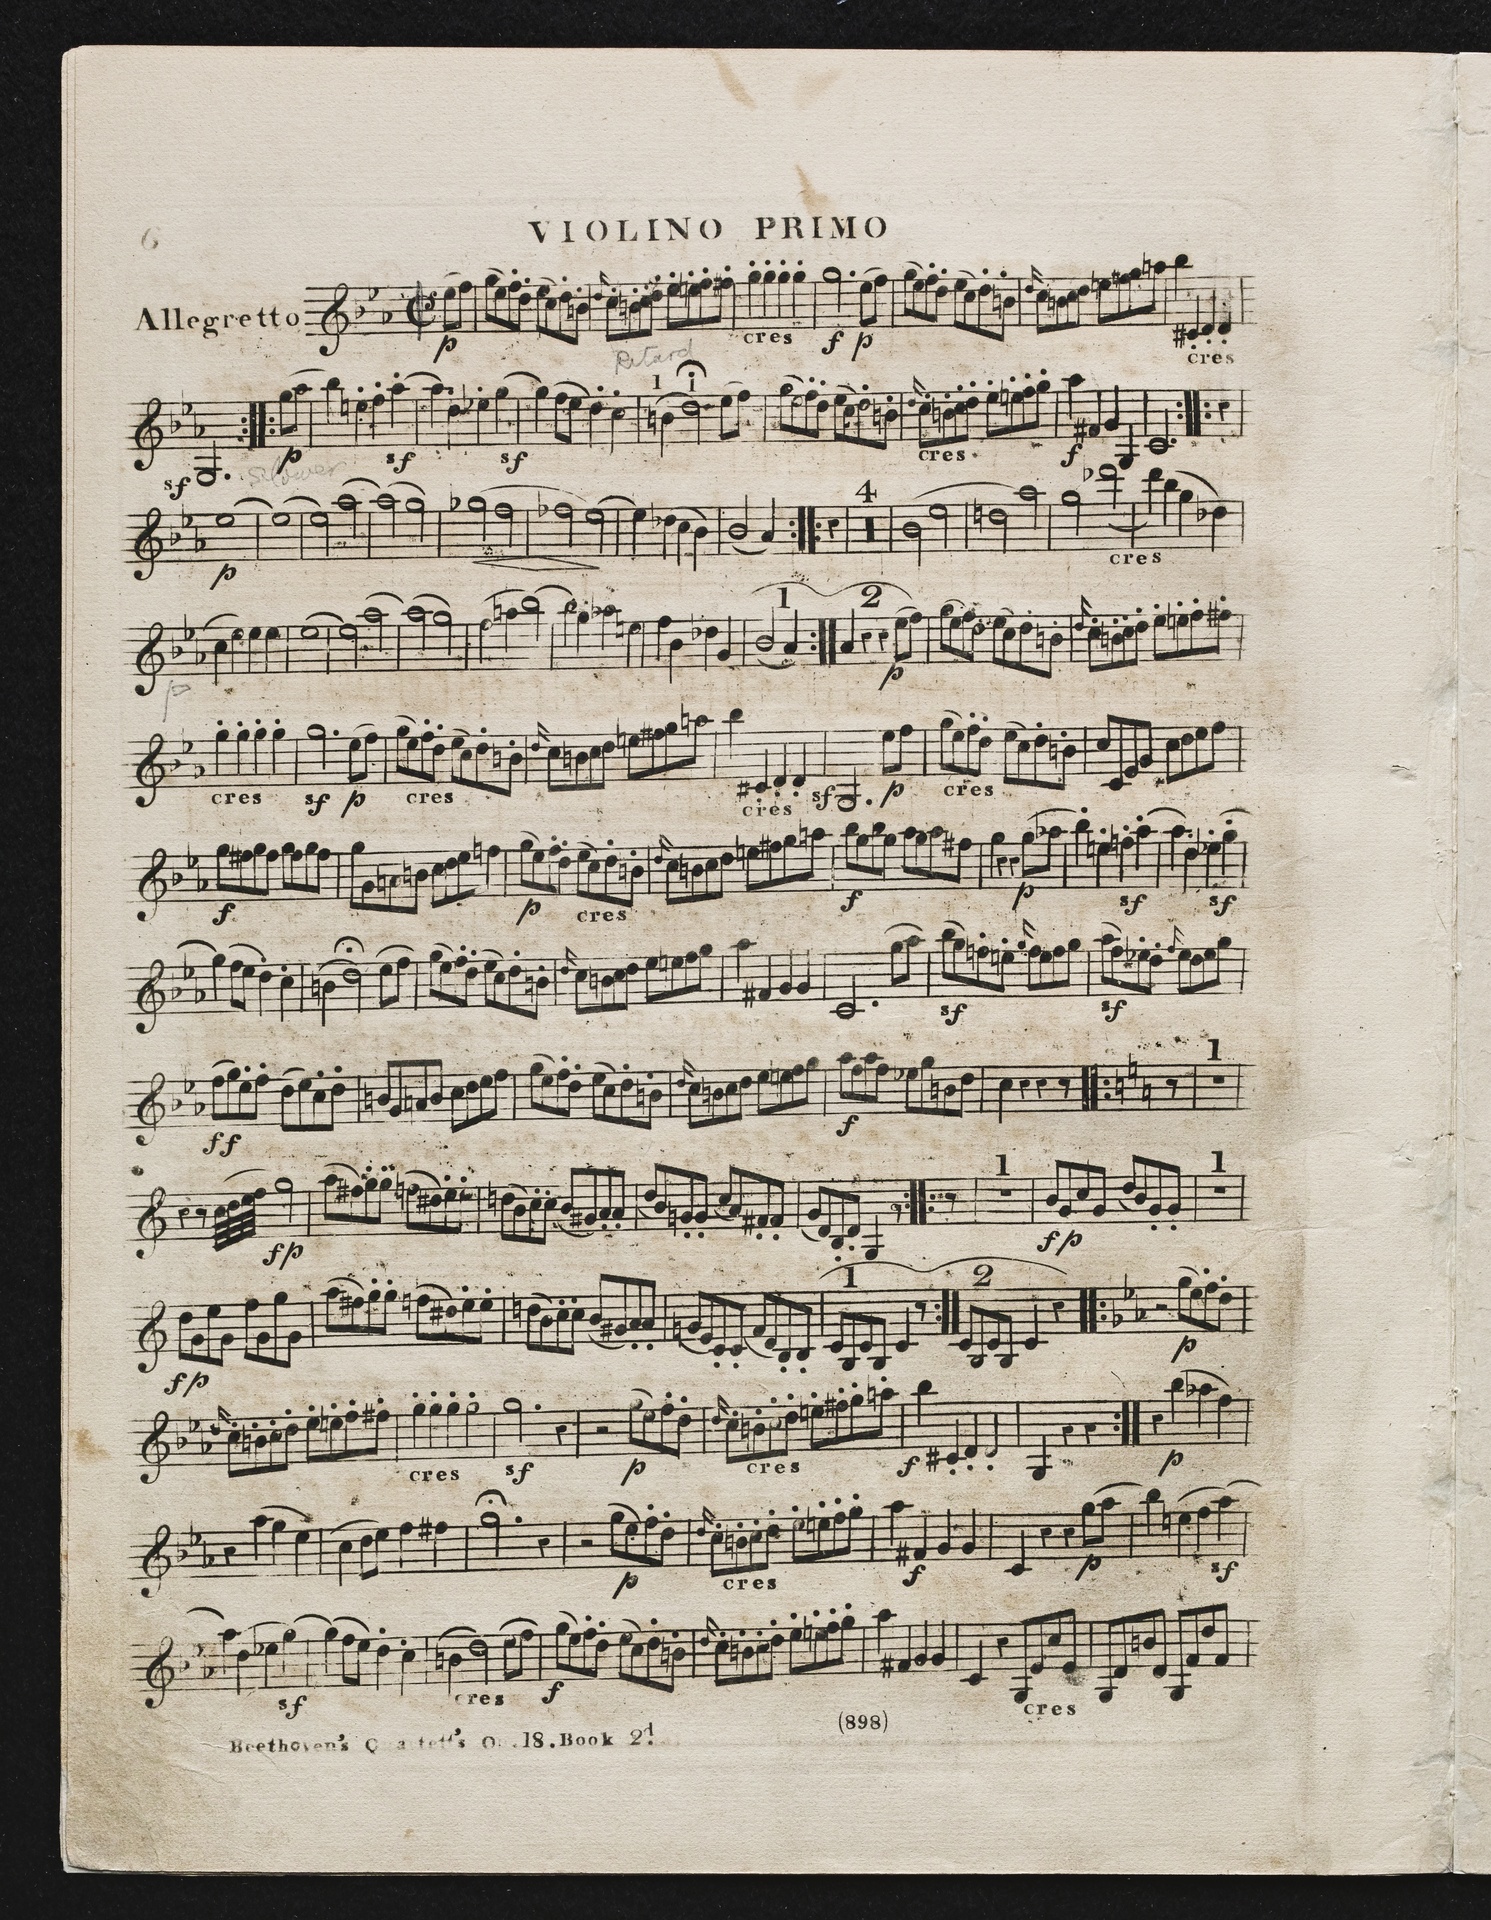 6
VIOLINO PRIMO
Allegretto
p cres f p cres
Retard
1 1
sf p sf sf cres f
slower
4
p cres
1 2
p p
cres sf p cres cres sf p cres
f p cres f p sf sf
sf sf
1
ff f
1 1
fp fp
1 2
fp p
cres sf p cres f p
p cres f p sf
sf cres f cres
Beethoven's Quartett's Op.18.Book 2d.
(898)